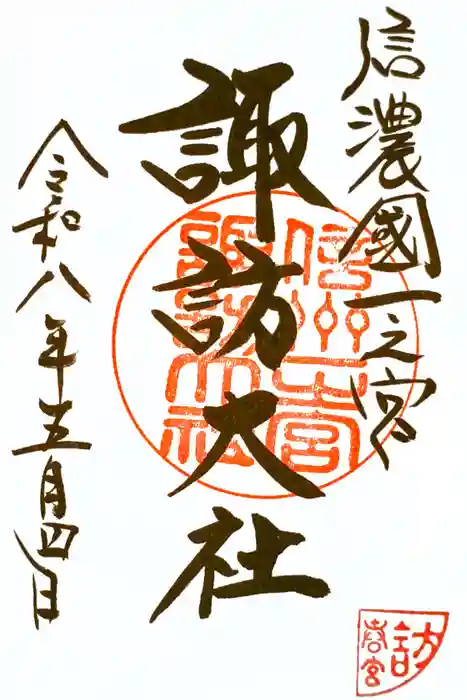 信濃國一之宮
諏訪大社
令和八年五月四日
信州一宮
諏訪大社
春宮